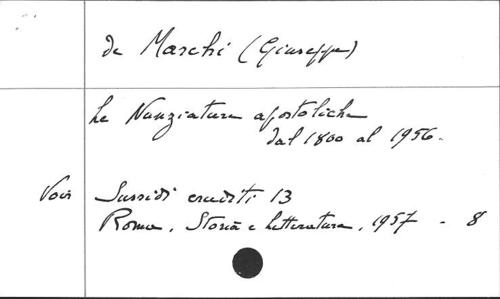 de Marchi (Giuseppe)
Le Nunziature apostoliche
dal 1800 al 1956.
Voir Sussidi eruditi 13
Roma, Storia e letteratura, 1957 - 8